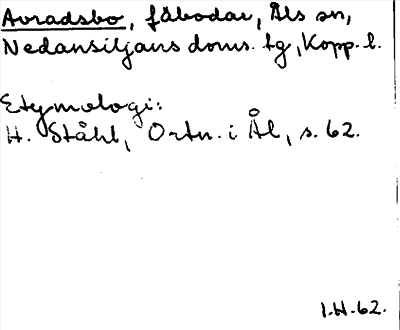 Avradsbo, fäbodar, Åls sn,
Nedansiljans doms. tg, Kopp. l.
Etymologi:
H. Ståhl, Ortn. i Ål, s. 62.
I.H. 62.